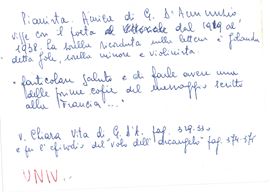 Pianista. Amica di G. D'Annunzio
visse con il poeta al Vittoriale dal 1919 al
1938, la sorella secondata nelle lettere è Jolanda
detta Jole, sorella minore e violinista.
- particolari saluto e di farle avere una
delle prime copie del messaggio scritto
alla "Francia..."
v. Chiara Vita di G. d'A. pag. 329-330
e per l'episodio del "volo dell'arcangelo" pag. 374-375
UNIV..